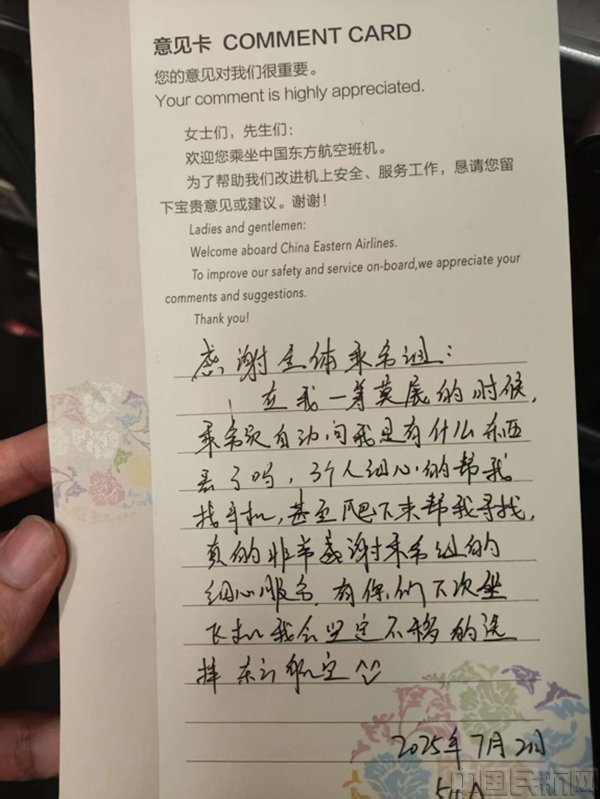 意见卡 COMMENT CARD
您的意见对我们很重要。
Your comment is highly appreciated.
女士们，先生们：
欢迎您乘坐中国东方航空班机。
为了帮助我们改进机上安全、服务工作，恳请您留
下宝贵意见或建议。谢谢！
Ladies and gentlemen:
Welcome aboard China Eastern Airlines.
To improve our safety and service on-board,we appreciate your
comments and suggestions.
Thank you!
感谢全体乘务组：
在我一筹莫展的时候，
乘务员自动问我是有什么东西
丢了吗，3个人细心的帮我
找手机，甚至爬下来帮我寻找，
真的非常感谢乘务组的
细心服务，有你们下次坐
飞机我会坚定不移的选
择东方航空
2025年7月2日
54A
中国民航网